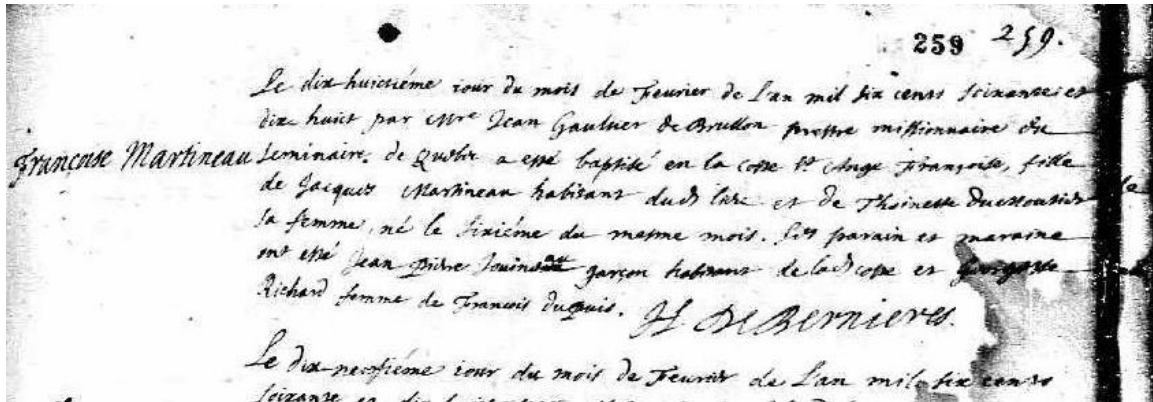 259 259.
Le dix huictiéme iour du mois de Feurier de L'an mil six cents soixante et
dix huict par Mre Jean Gaultier de Brullon prestre missionnaire du
Françoise Martineau
seminaire de Quebec a esté baptisé en la coste St Ange Françoise, fille
de Jacques Martineau habitant dud lieu et de Thoinette
sa femme, né le sixiéme du mesme mois. Ses parain et maraine
ont esté Jean Pierre garçon habitant de lad coste et Georgette
Richard femme de Francois dupuis. H De Bernieres.
Le dix neufiéme iour du mois de Feurier de L'an mil six cents
soixante et dix huict